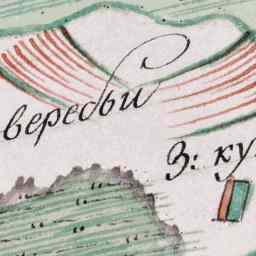 вересьи
З: ку